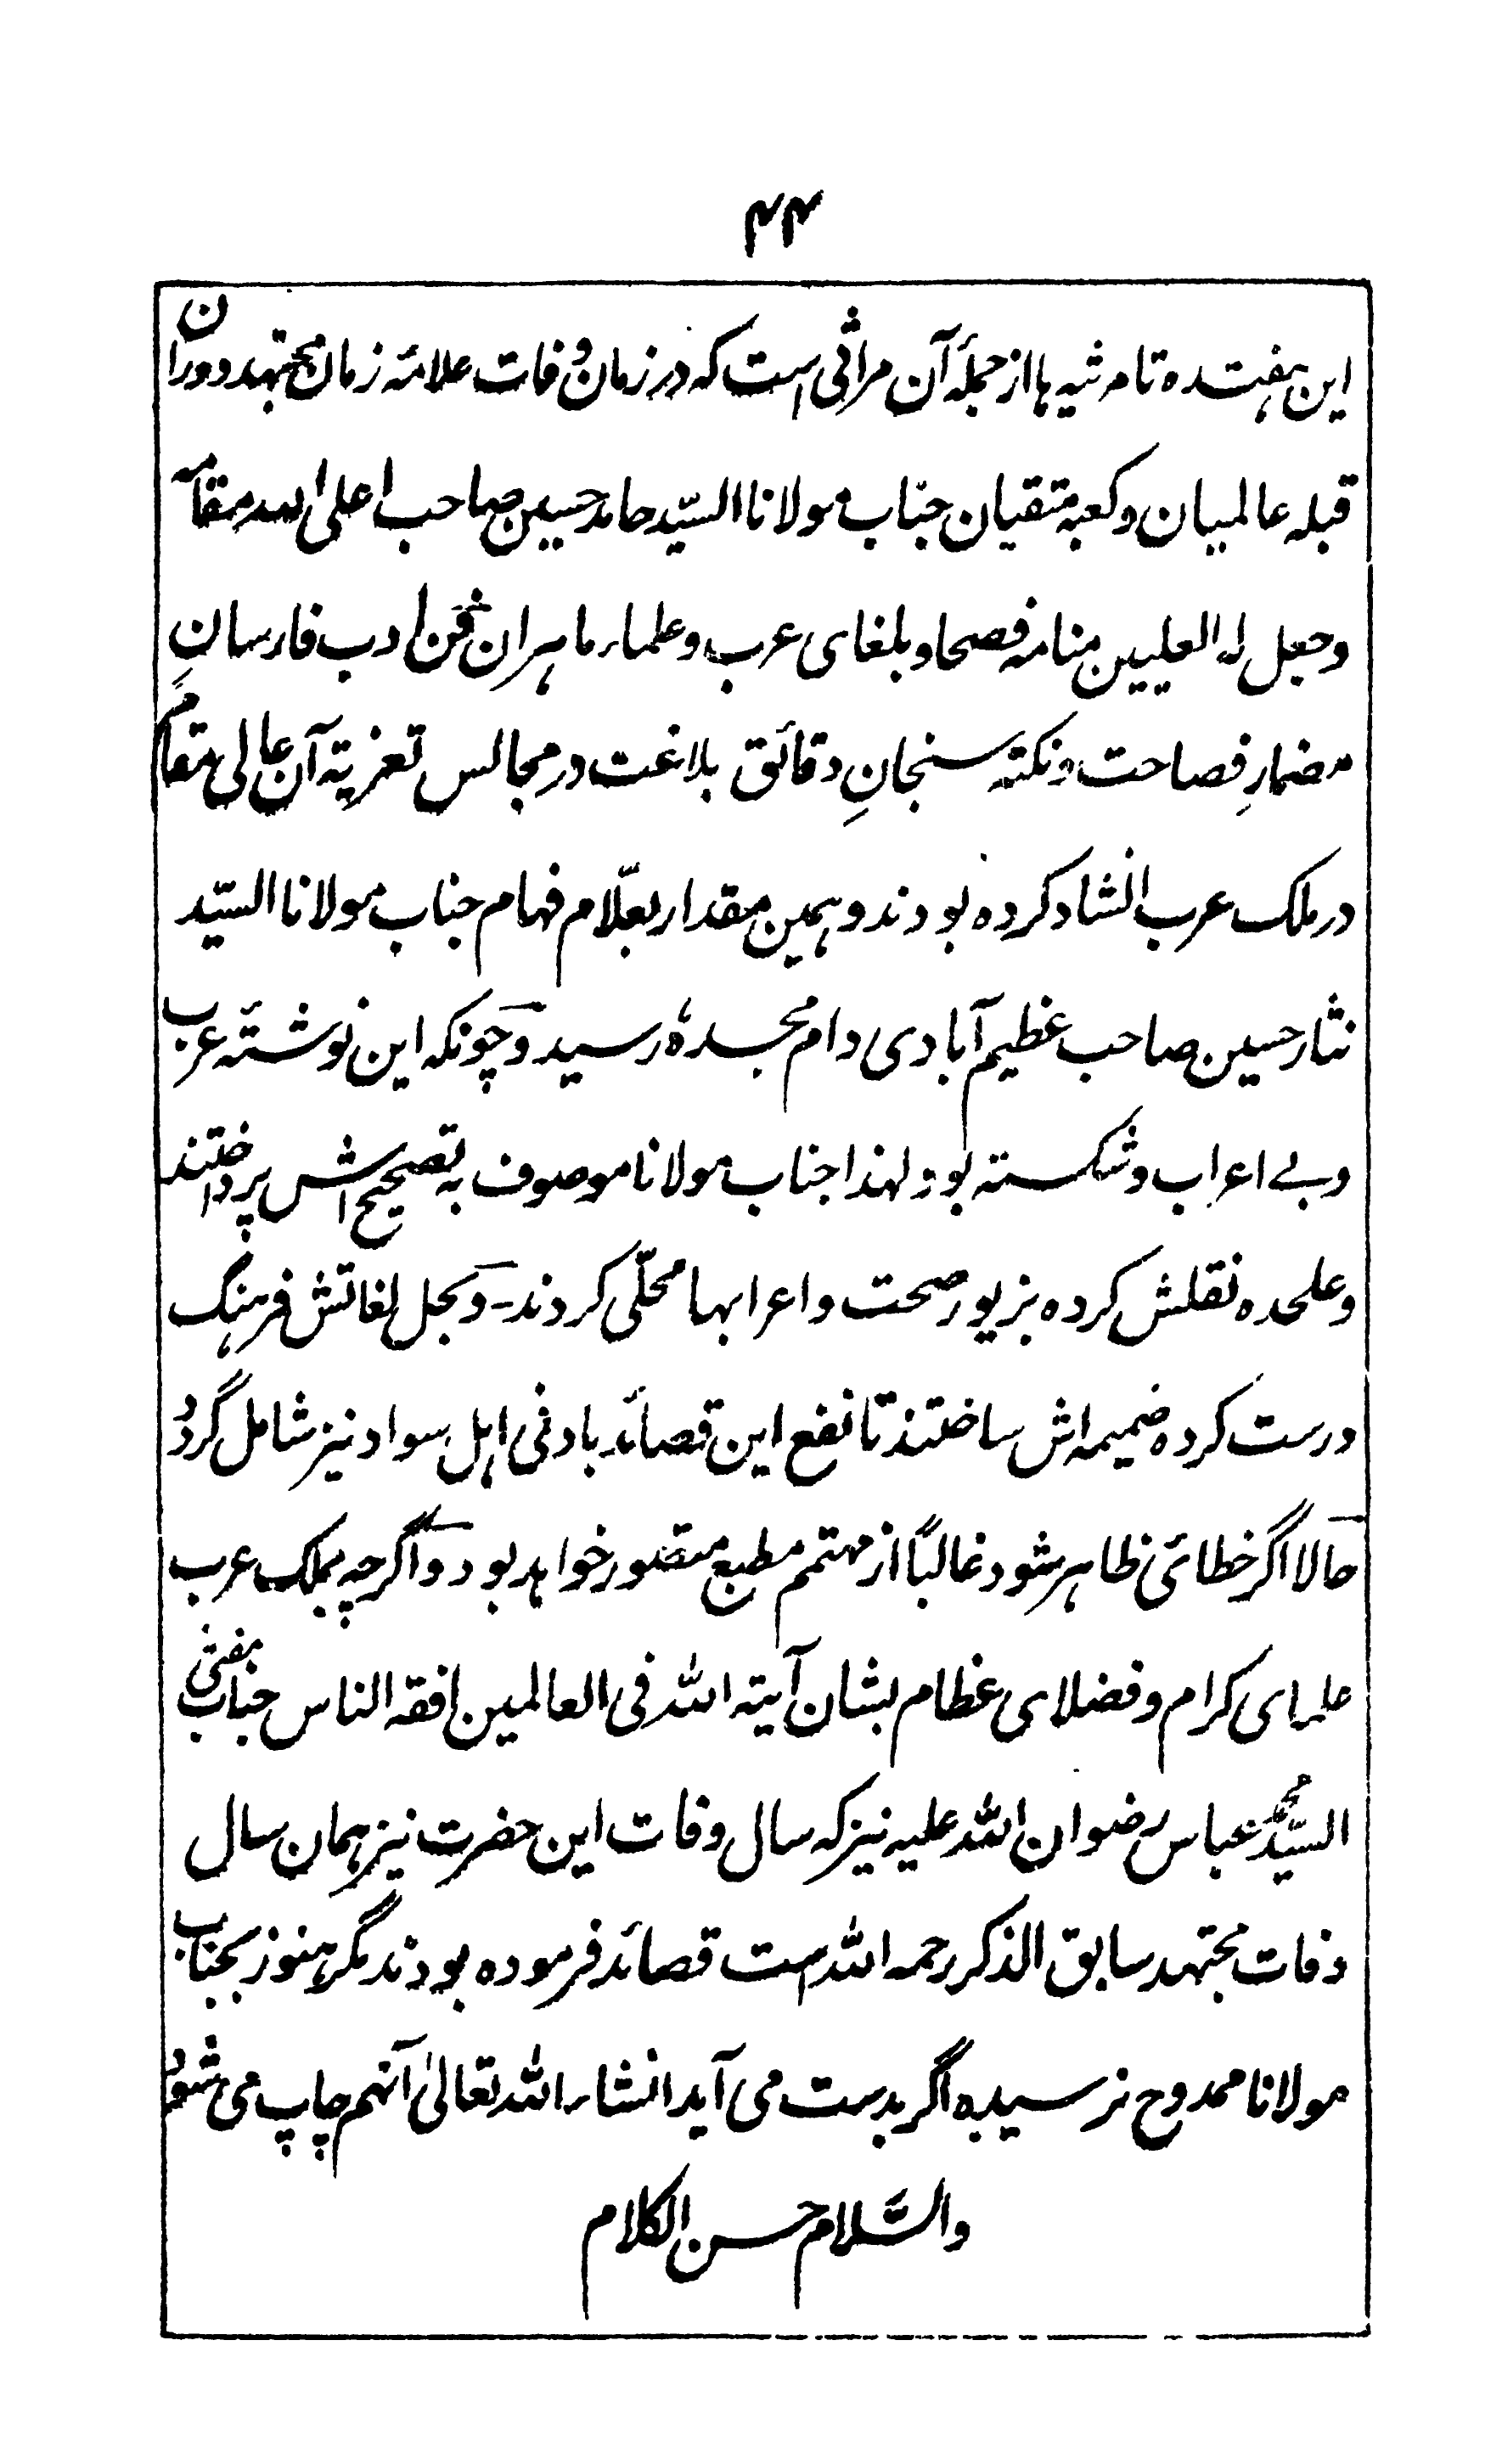 ۴۴
این ہفتدہ تا مرثیہ ہا از جملۂ آن مراثی است کہ در زمان وفات علامۂ زمان مجتہد دوران
قبلہ عالمیان و کعبۂ متقیان جناب مولانا السیّد حامد حسین صاحب اعلی اللہ مقامہ
وجعل لہ العلیین منامہ فصحا و بلغای عرب و علماء ماہران فن ادب فارسانِ
مضمارِ فصاحت و نکتہ سنجانِ دقائق بلاغت در مجالس تعزیۃ آن عالی مقام
در ملک عرب انشاد کردہ بودند و ہمین مقدار بعلّام فہام جناب مولانا السیّد
نثار حسین صاحب عظیم آبادی دام مجدہٗ رسید و چونکہ این نوشتۂ عرب
و بے اعراب و شکستہ بود لہذا جناب مولانا موصوف بہ تصحیح اش پرداختند
و علحدہ نقلش کردہ بزیور صحت و اعرابہا محلّی کردند۔ و بحل لغاتش فرہنگ
درست کردہ ضمیمہ اش ساختند تا نفع این قصائد بادنی اہل سواد نیز شامل گردد
حالا اگر خطائی ظاہر شود غالباً از مہتمم مطبع متصور خواہد بود و اگرچہ بملک عرب
علمای کرام و فضلای عظام بشان آیتہ اللہ فی العالمین افقہ الناس جناب مفتی
السیّد محمد عباس رضوان اللہ علیہ نیز کہ سال وفات این حضرت نیز ہمان سال
وفات مجتہد سابق الذکر رحمہ اللہ است قصائد فرمودہ بودند مگر ہنوز بجناب
مولانا ممدوح نرسیدہ اگر بدست می آید انشاء اللہ تعالیٰ آنہم چاپ می شود
والسَّلام حسن الکلام